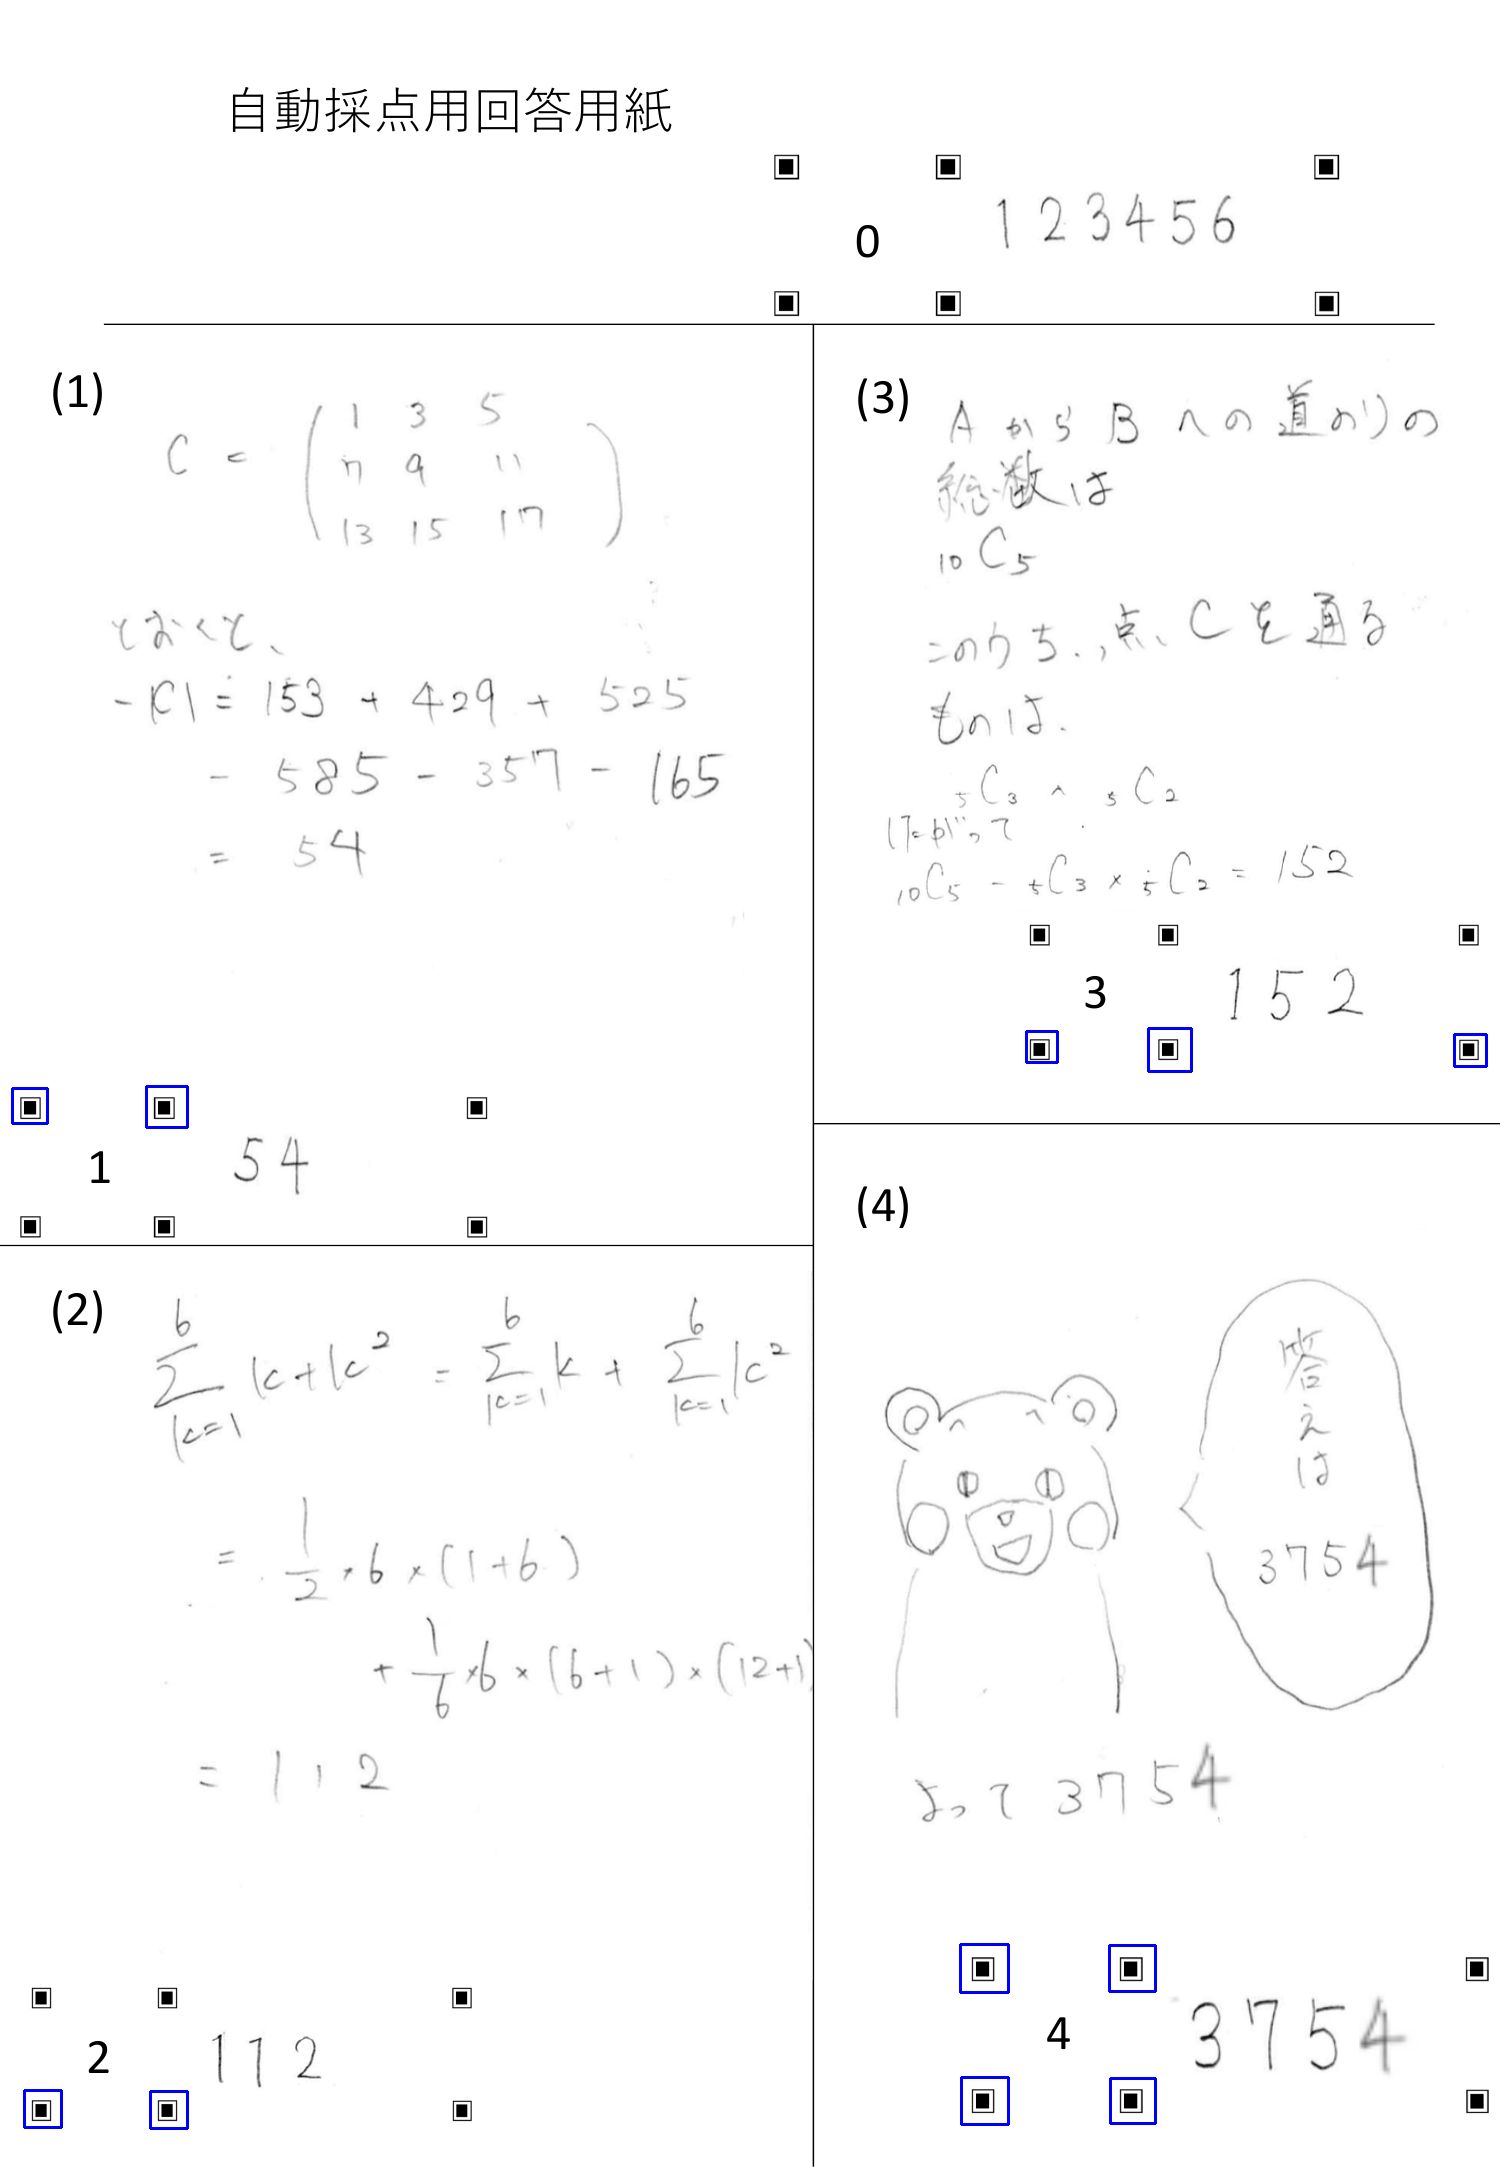 自動採点用回答用紙
0 123456
(1)
C = ( 1 3 5
7 9 11
13 15 17 )
とおくと、
- |C| = 153 + 429 + 525
- 585 - 357 - 165
= 54
1 54
(2)
6 Σ k=1 k+k² = 6 Σ k=1 k + 6 Σ k=1 k²
= 1/2 × 6 × (1+6)
+ 1/6 × 6 × (6+1) × (12+1)
= 112
2 112
(3)
AからBへの道のりの
総数は
₁₀C₅
このうち、点Cを通る
ものは、
₅C₃ × ₅C₂
したがって
₁₀C₅ - ₅C₃ × ₅C₂ = 152
3 152
(4)
答えは
3754
よって 3754
4 3754